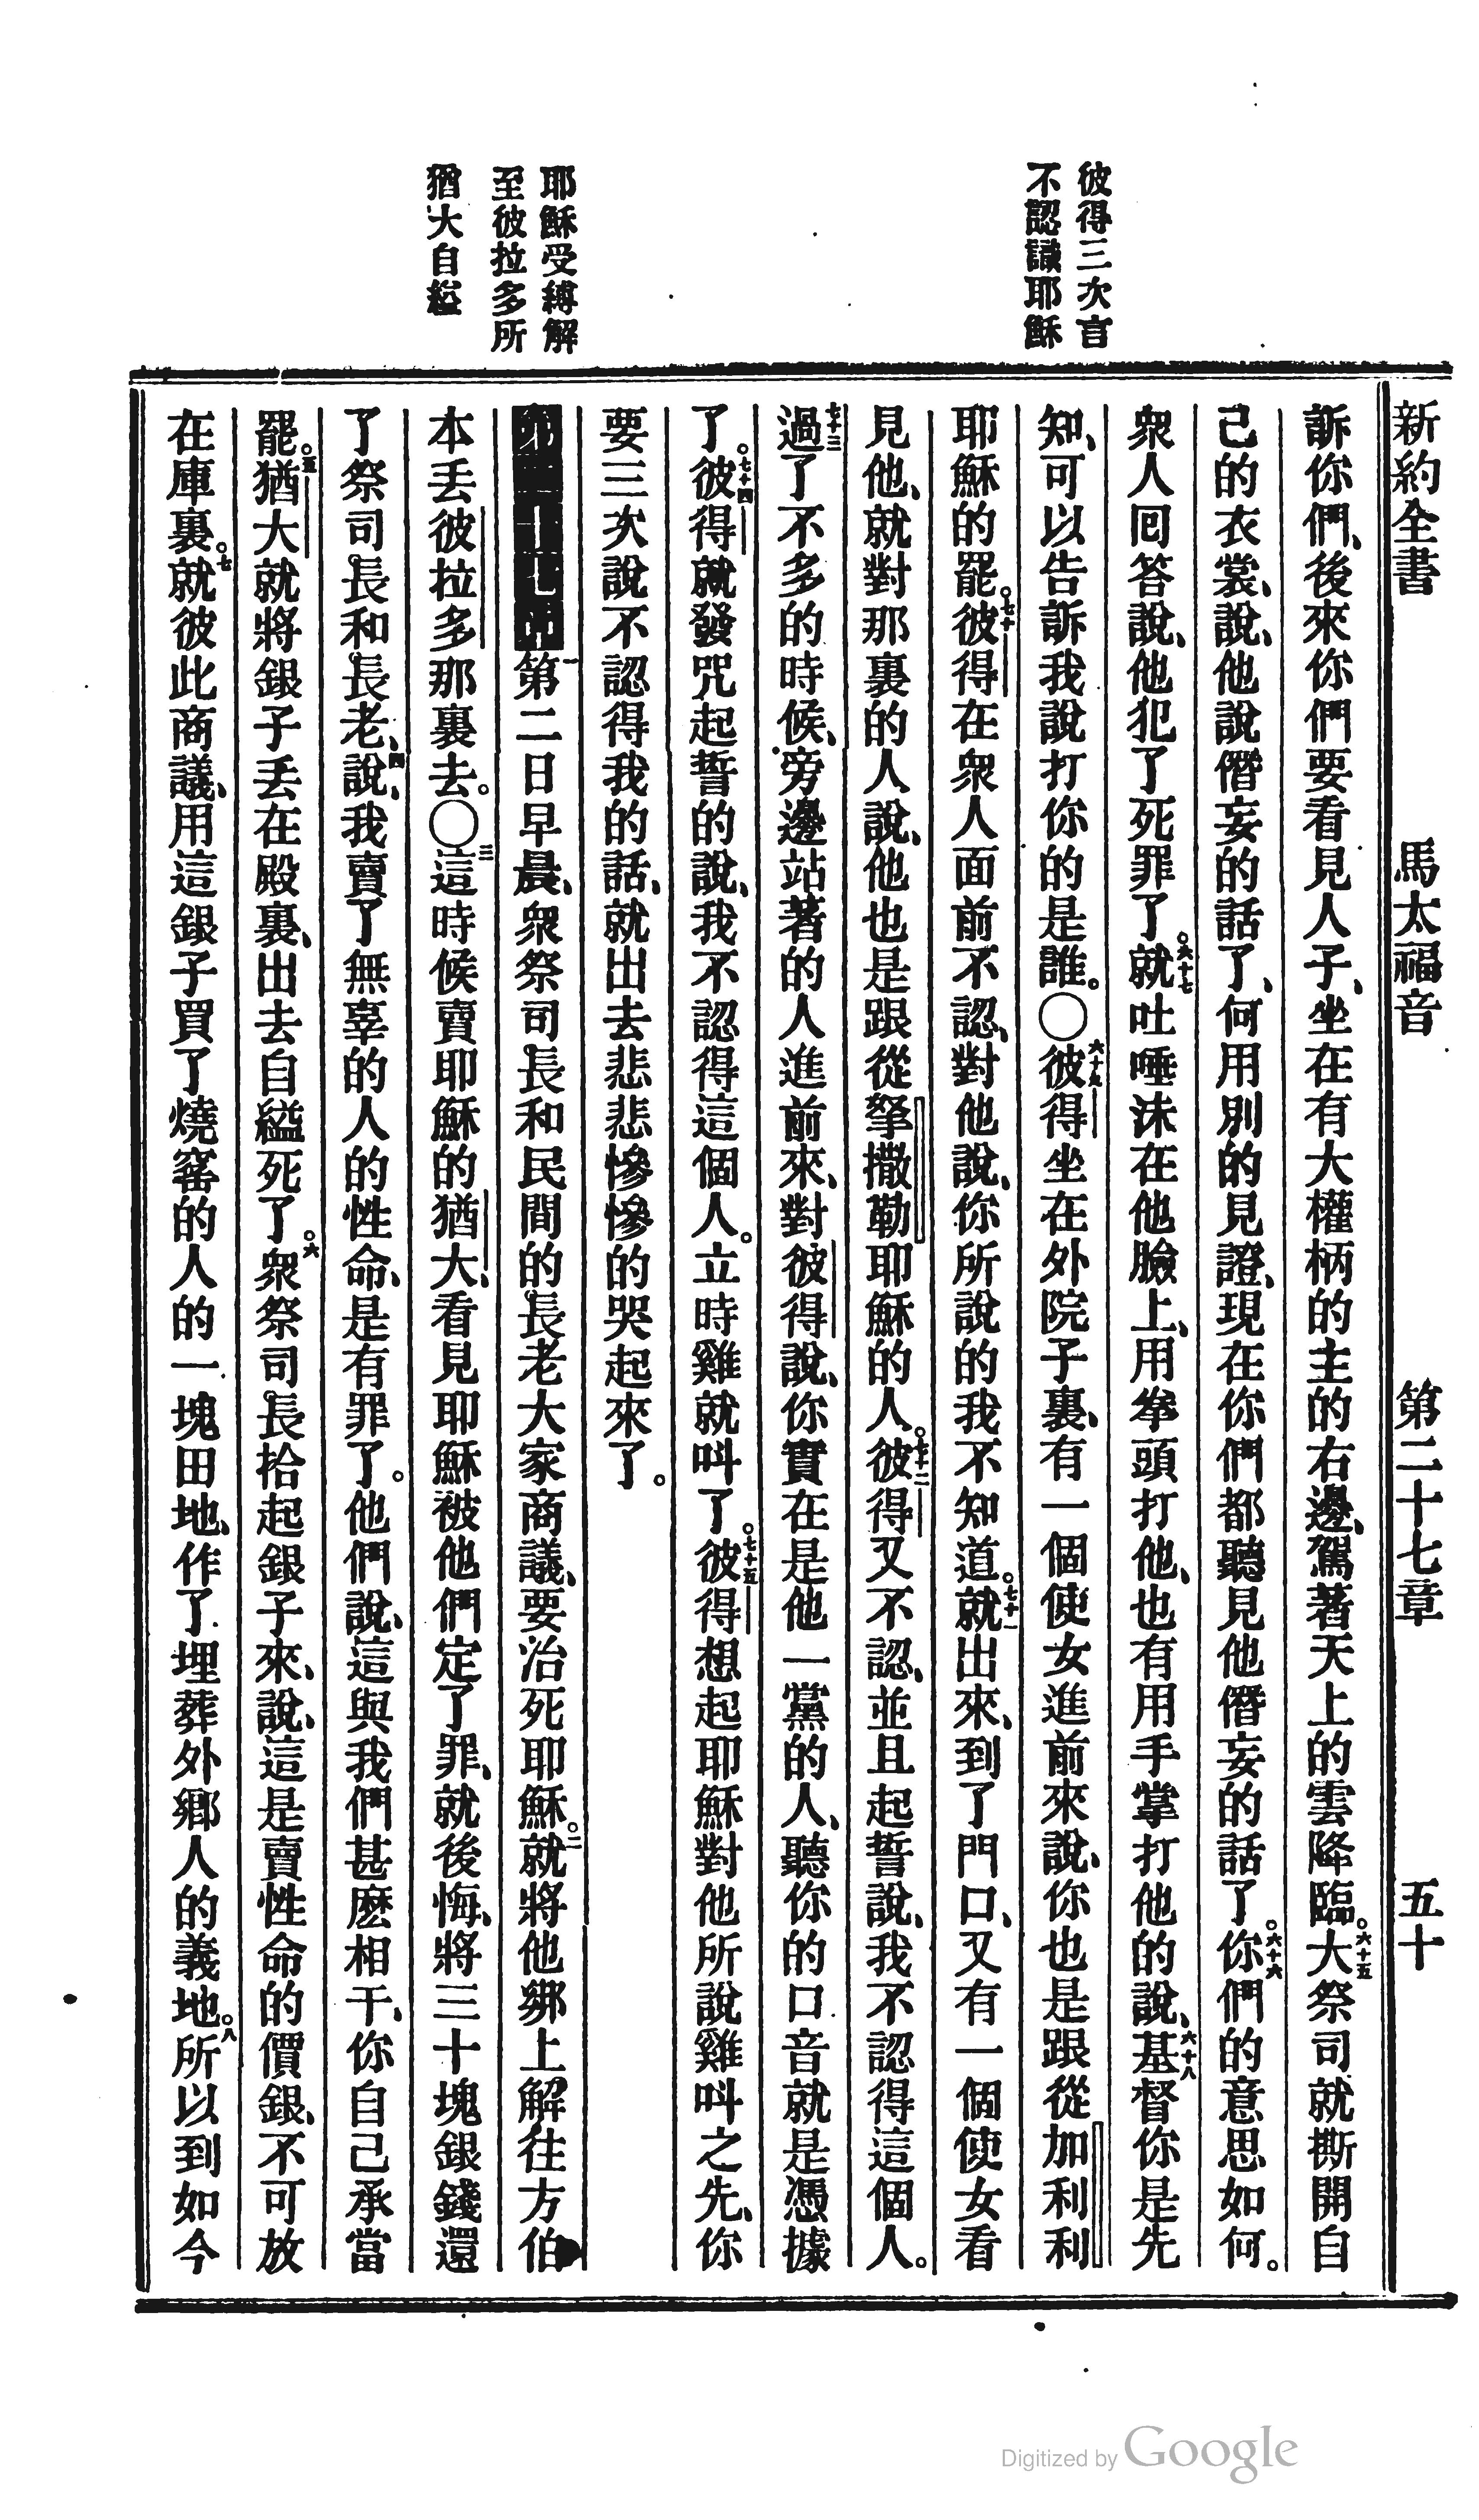 彼得三次言
不認識耶穌
耶穌受縛解
至彼拉多所
猶大自縊
新約全書 馬太福音 第二十七章 五十
訴你們、後來你們要看見人子、坐在有大權柄的主的右邊、駕著天上的雲降臨。六十五大祭司就撕開自
己的衣裳、說、他說僭妄的話了、何用別的見證、現在你們都聽見他僭妄的話了。六十六你們的意思如何。
衆人囘答說、他犯了死罪了。六十七就吐唾沫在他臉上、用拳頭打他、也有用手掌打他的說、六十八基督你是先
知、可以告訴我說打你的是誰。〇六十九彼得坐在外院子裏、有一個使女進前來說、你也是跟從加利利
耶穌的罷。七十彼得在衆人面前不認、對他說、你所說的我不知道。七十一就出來、到了門口、又有一個使女看
見他、就對那裏的人說、他也是跟從拏撒勒耶穌的人。七十二彼得又不認、並且起誓說、我不認得這個人。
七十三過了不多的時候、旁邊站著的人進前來、對彼得說、你實在是他一黨的人、聽你的口音就是憑據
了。七十四彼得就發咒起誓的說、我不認得這個人。立時雞就呌了。七十五彼得想起耶穌對他所說雞呌之先、你
要三次說不認得我的話、就出去悲悲慘慘的哭起來了。
第二十七章一第二日早晨、衆祭司長和民間的長老大家商議、要治死耶穌。二就將他綁上解往方伯
本丟彼拉多那裏去。〇三這時候賣耶穌的猶大、看見耶穌被他們定了罪、就後悔、將三十塊銀錢還
了祭司長和長老、四說、我賣了無辜的人的性命、是有罪了。他們說、這與我們甚麽相干、你自己承當
罷。五猶大就將銀子丟在殿裏、出去自縊死了。六衆祭司長拾起銀子來、說、這是賣性命的價銀、不可放
在庫裏。七就彼此商議、用這銀子買了燒窰的人的一塊田地、作了埋葬外鄉人的義地。八所以到如今
Digitized by Google